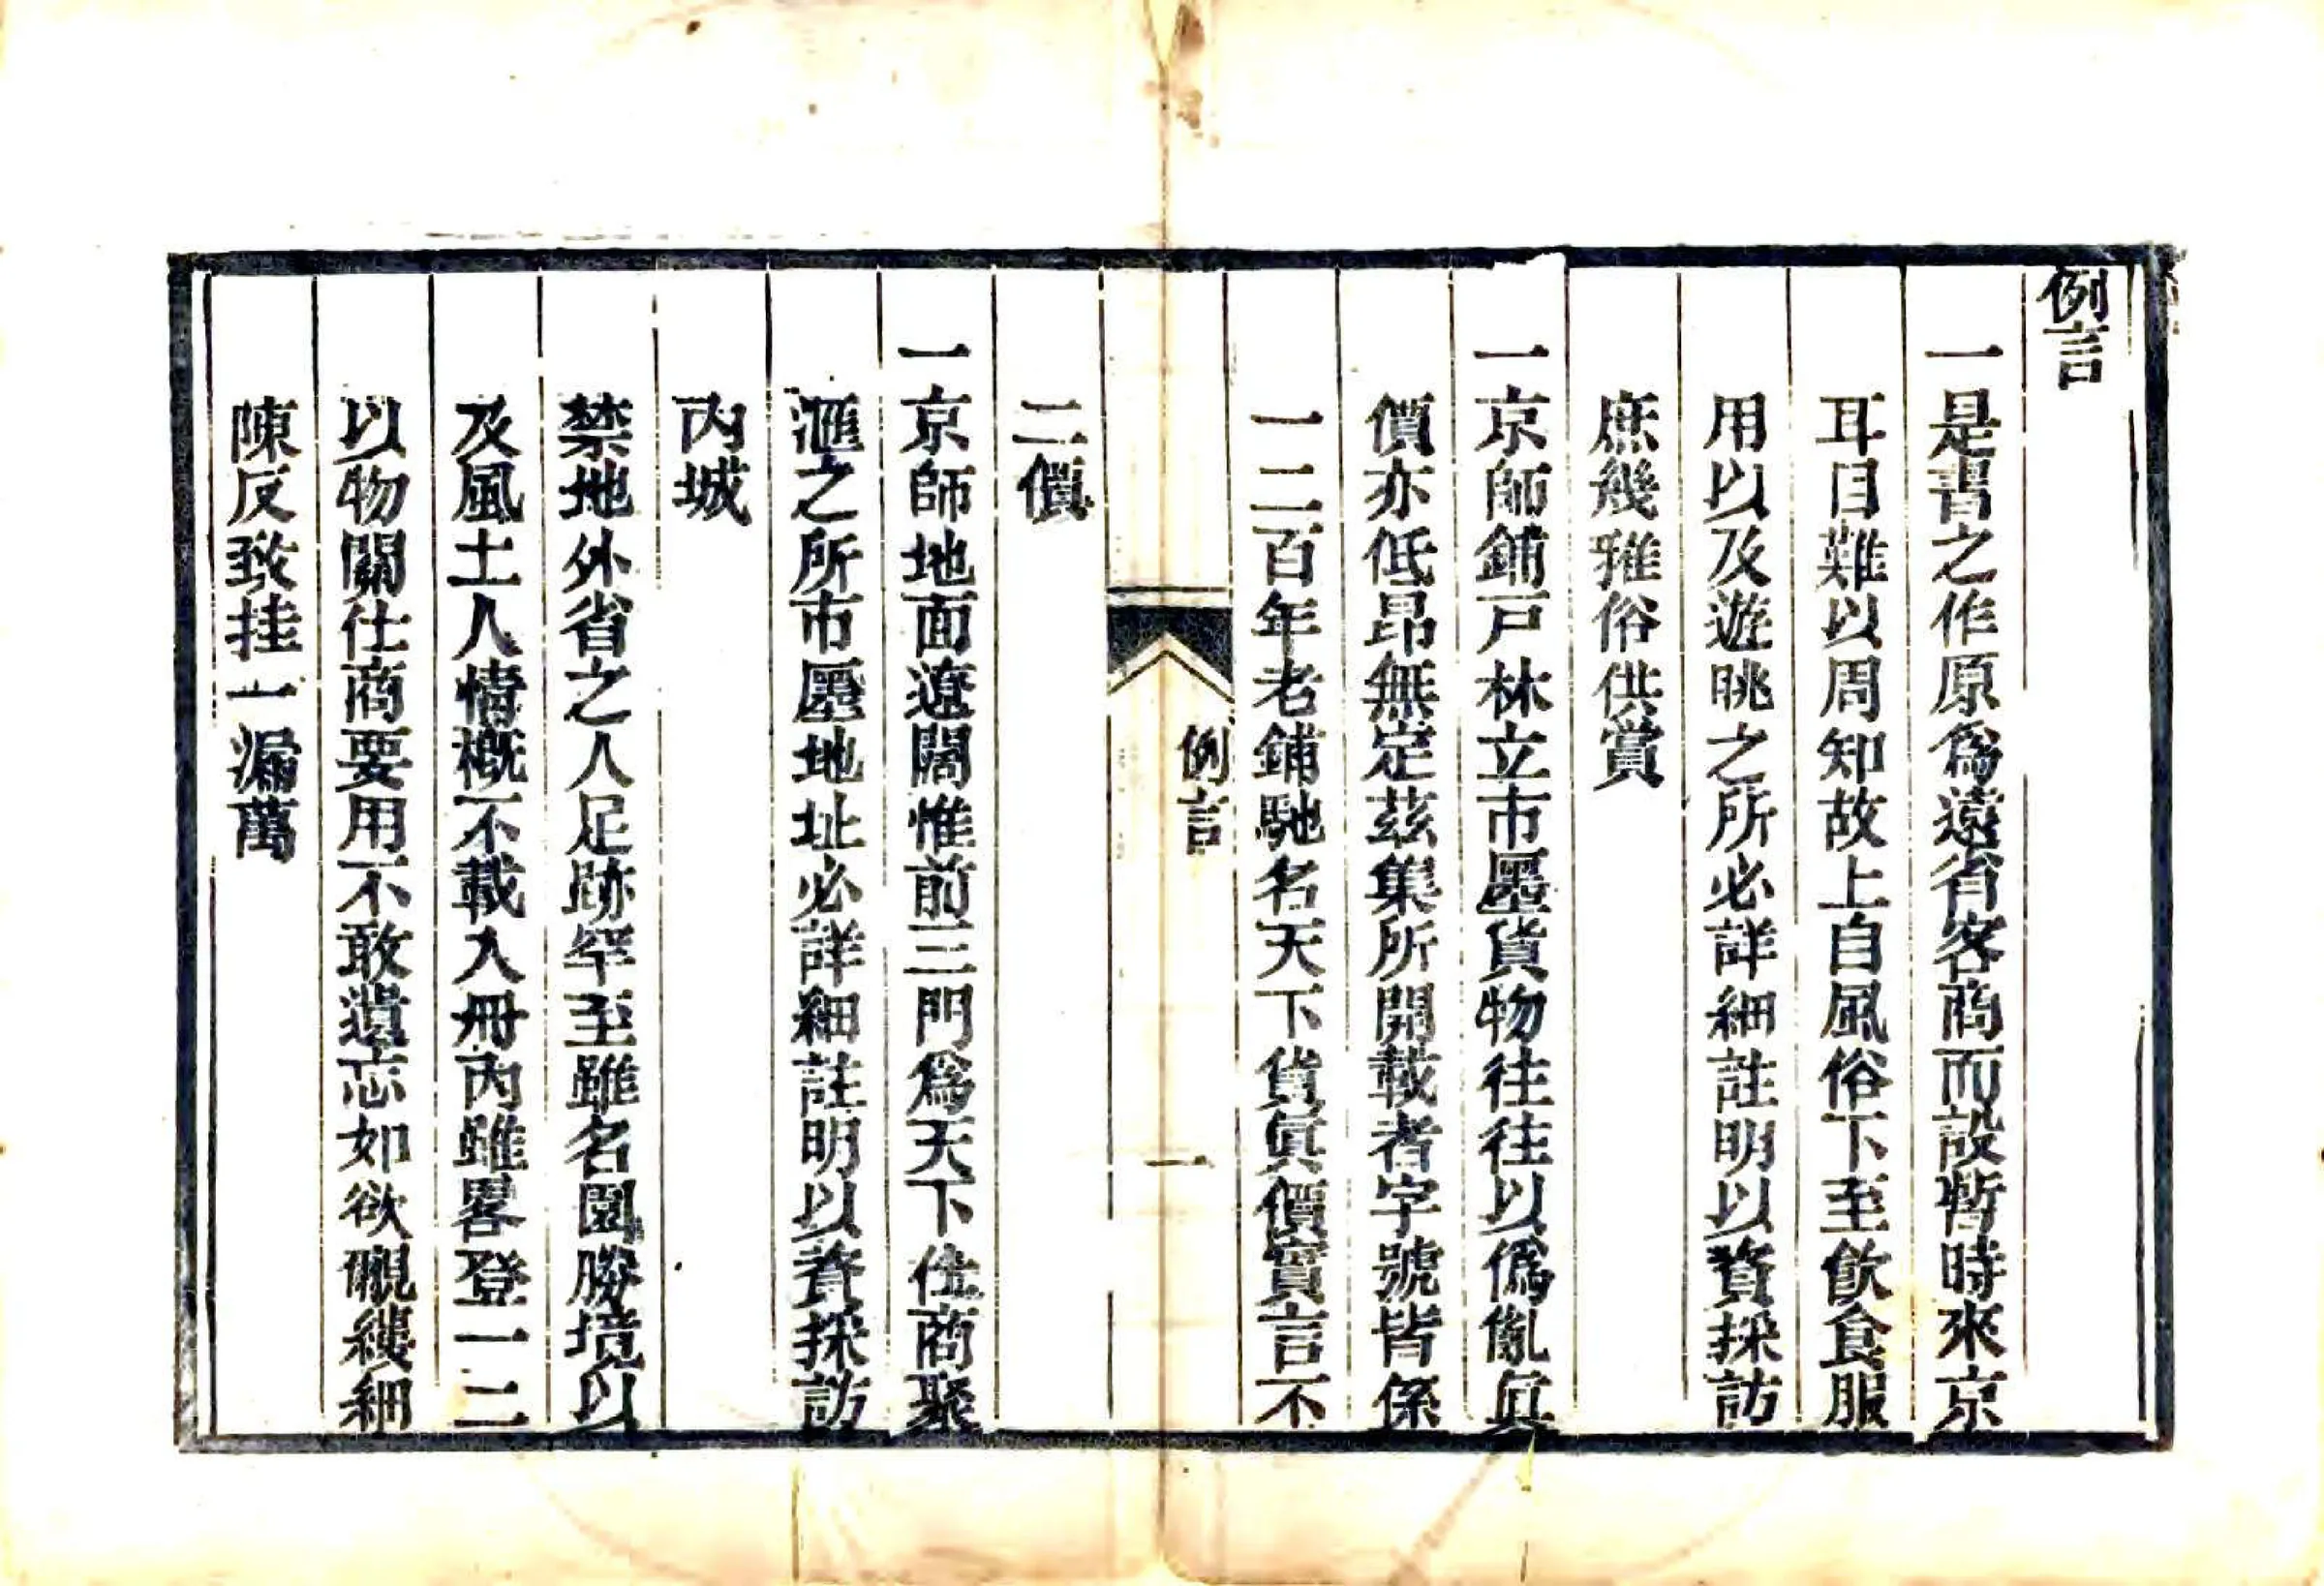 例言
一是書之作原爲遠省客商而設暫時來京
耳目難以周知故上自風俗下至飲食服
用以及遊眺之所必詳細註明以資採訪
庶幾雅俗供賞
一京師鋪戸林立市㕓貨物往往以僞亂眞
價亦低昂無定茲集所開載者字號皆係
一二百年老鋪馳名天下貨眞價實言不
例言
一
二價
一京師地面遼闊惟前三門爲天下仕商聚
滙之所市㕓地址必詳細註明以資採訪
內城
禁地外省之人足跡罕至雖名園勝境以
及風土人情槪不載入冊內雖畧登一二
以物關仕商要用不敢遺忘如欲覼縷細
陳反致挂一漏萬